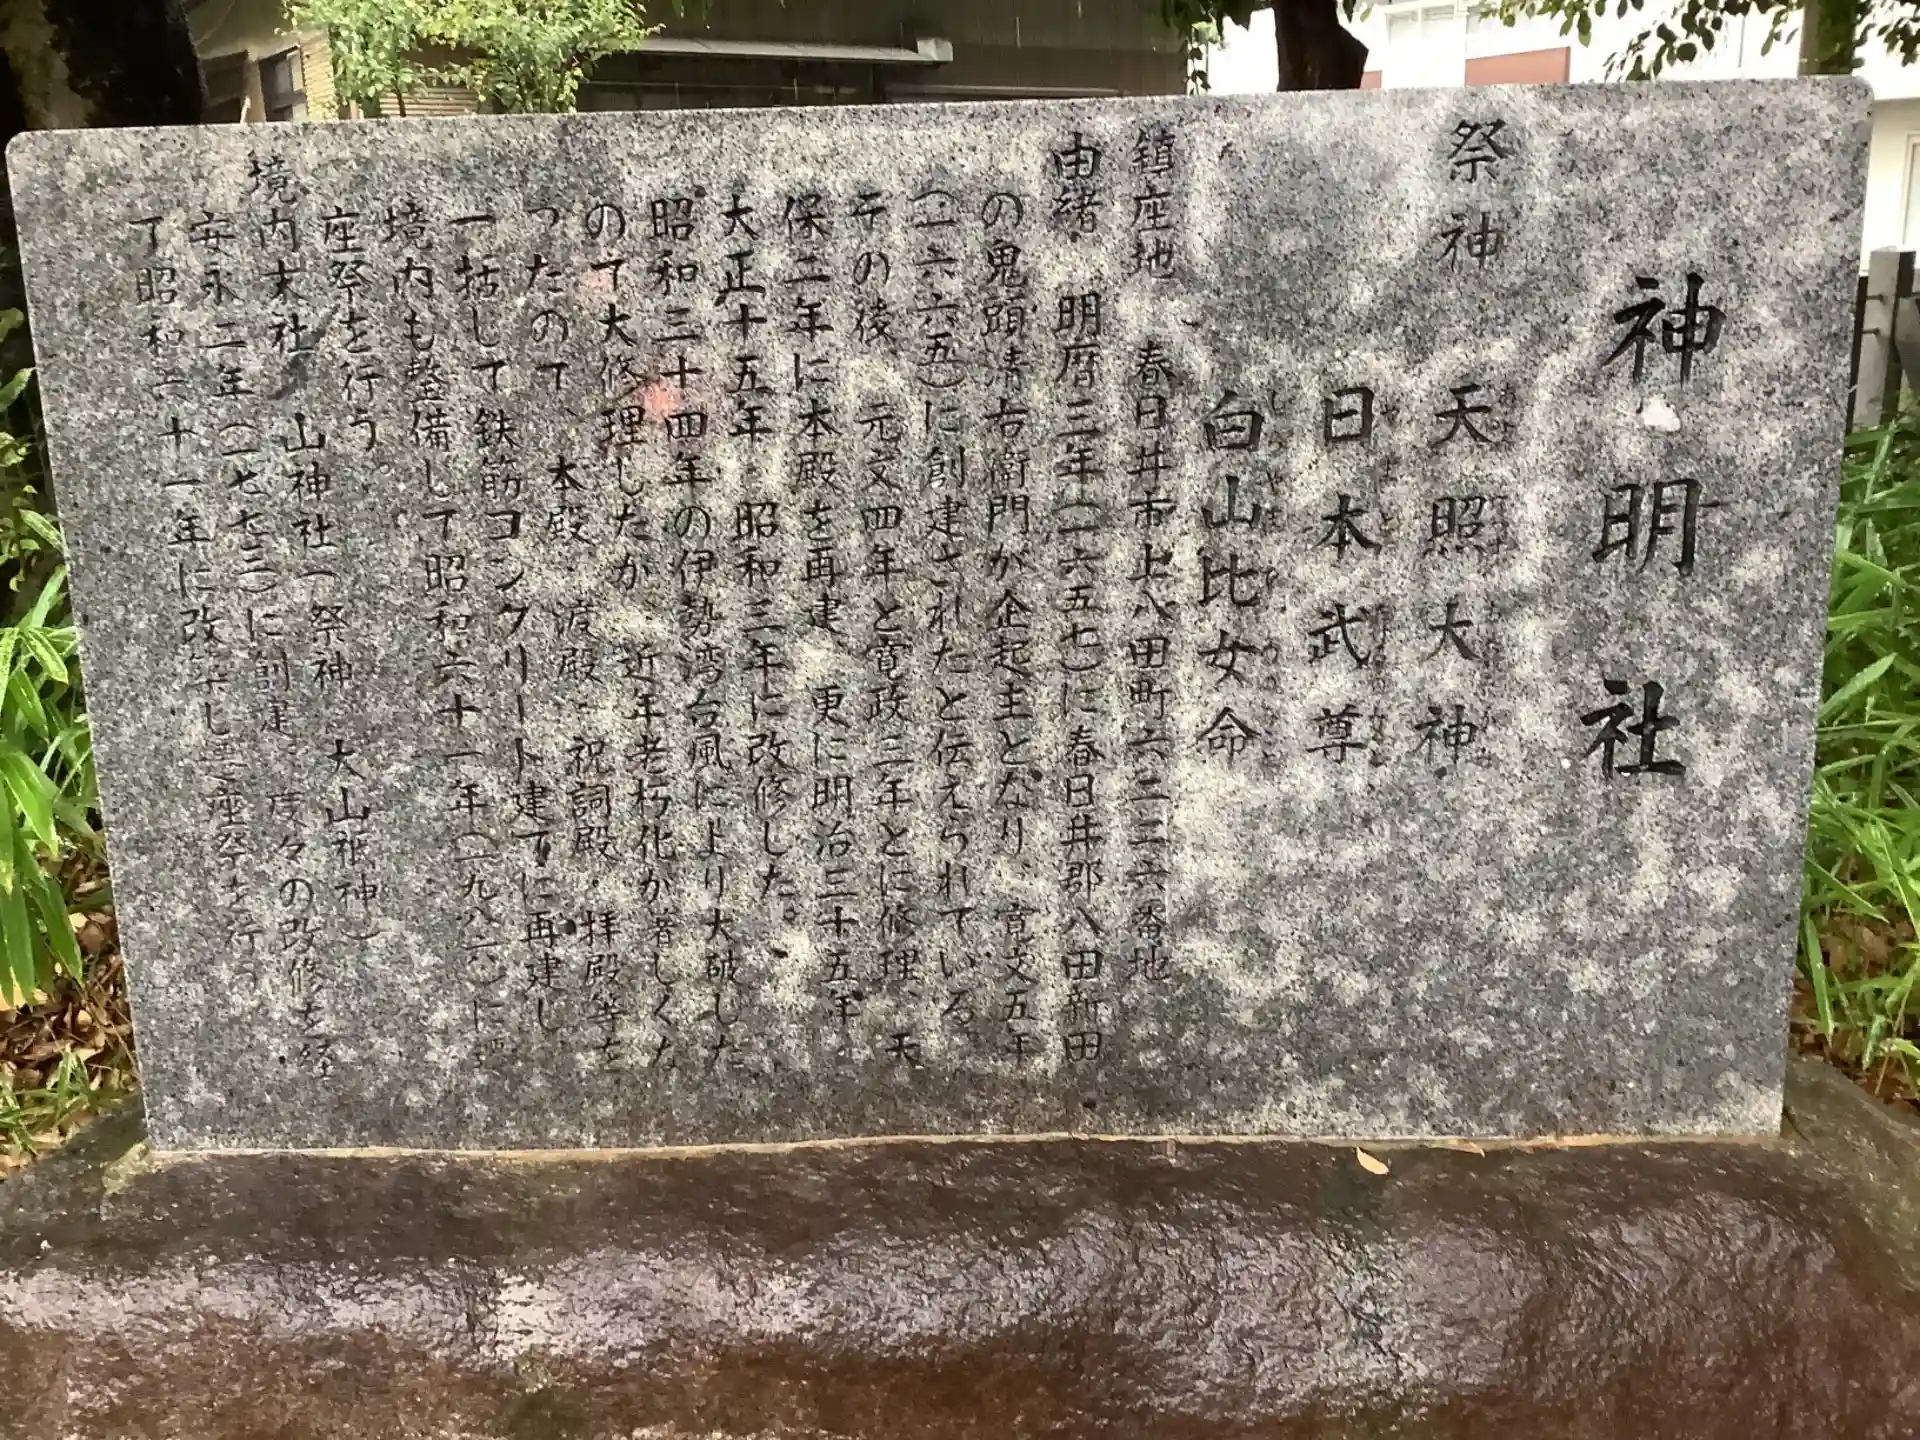 神明社
祭神 天照大神
日本武尊
白山比女命
鎮座地 春日井市上八田町六二三六番地
由緒 明暦三年(一六五七)に春日井郡八田新田
の鬼頭清右衛門が企起主となり、寛文五年
(一六六五)に創建されたと伝えられている。
その後、元文四年と寛政三年とに修理、天
保二年に本殿を再建、更に明治三十五年、
大正十五年、昭和三年に改修した。
昭和三十四年の伊勢湾台風により大破した
ので大修理したが、近年老朽化が著しくな
ったので、本殿・渡殿・祝詞殿・拝殿等を
一括して鉄筋コンクリート建てに再建し、
境内も整備して昭和六十一年(一九八六)に遷
座祭を行う。
境内末社 山神社(祭神 大山祇神)
安永二年(一七七三)に創建。度々の改修を経
て昭和六十一年に改築し遷座祭を行う